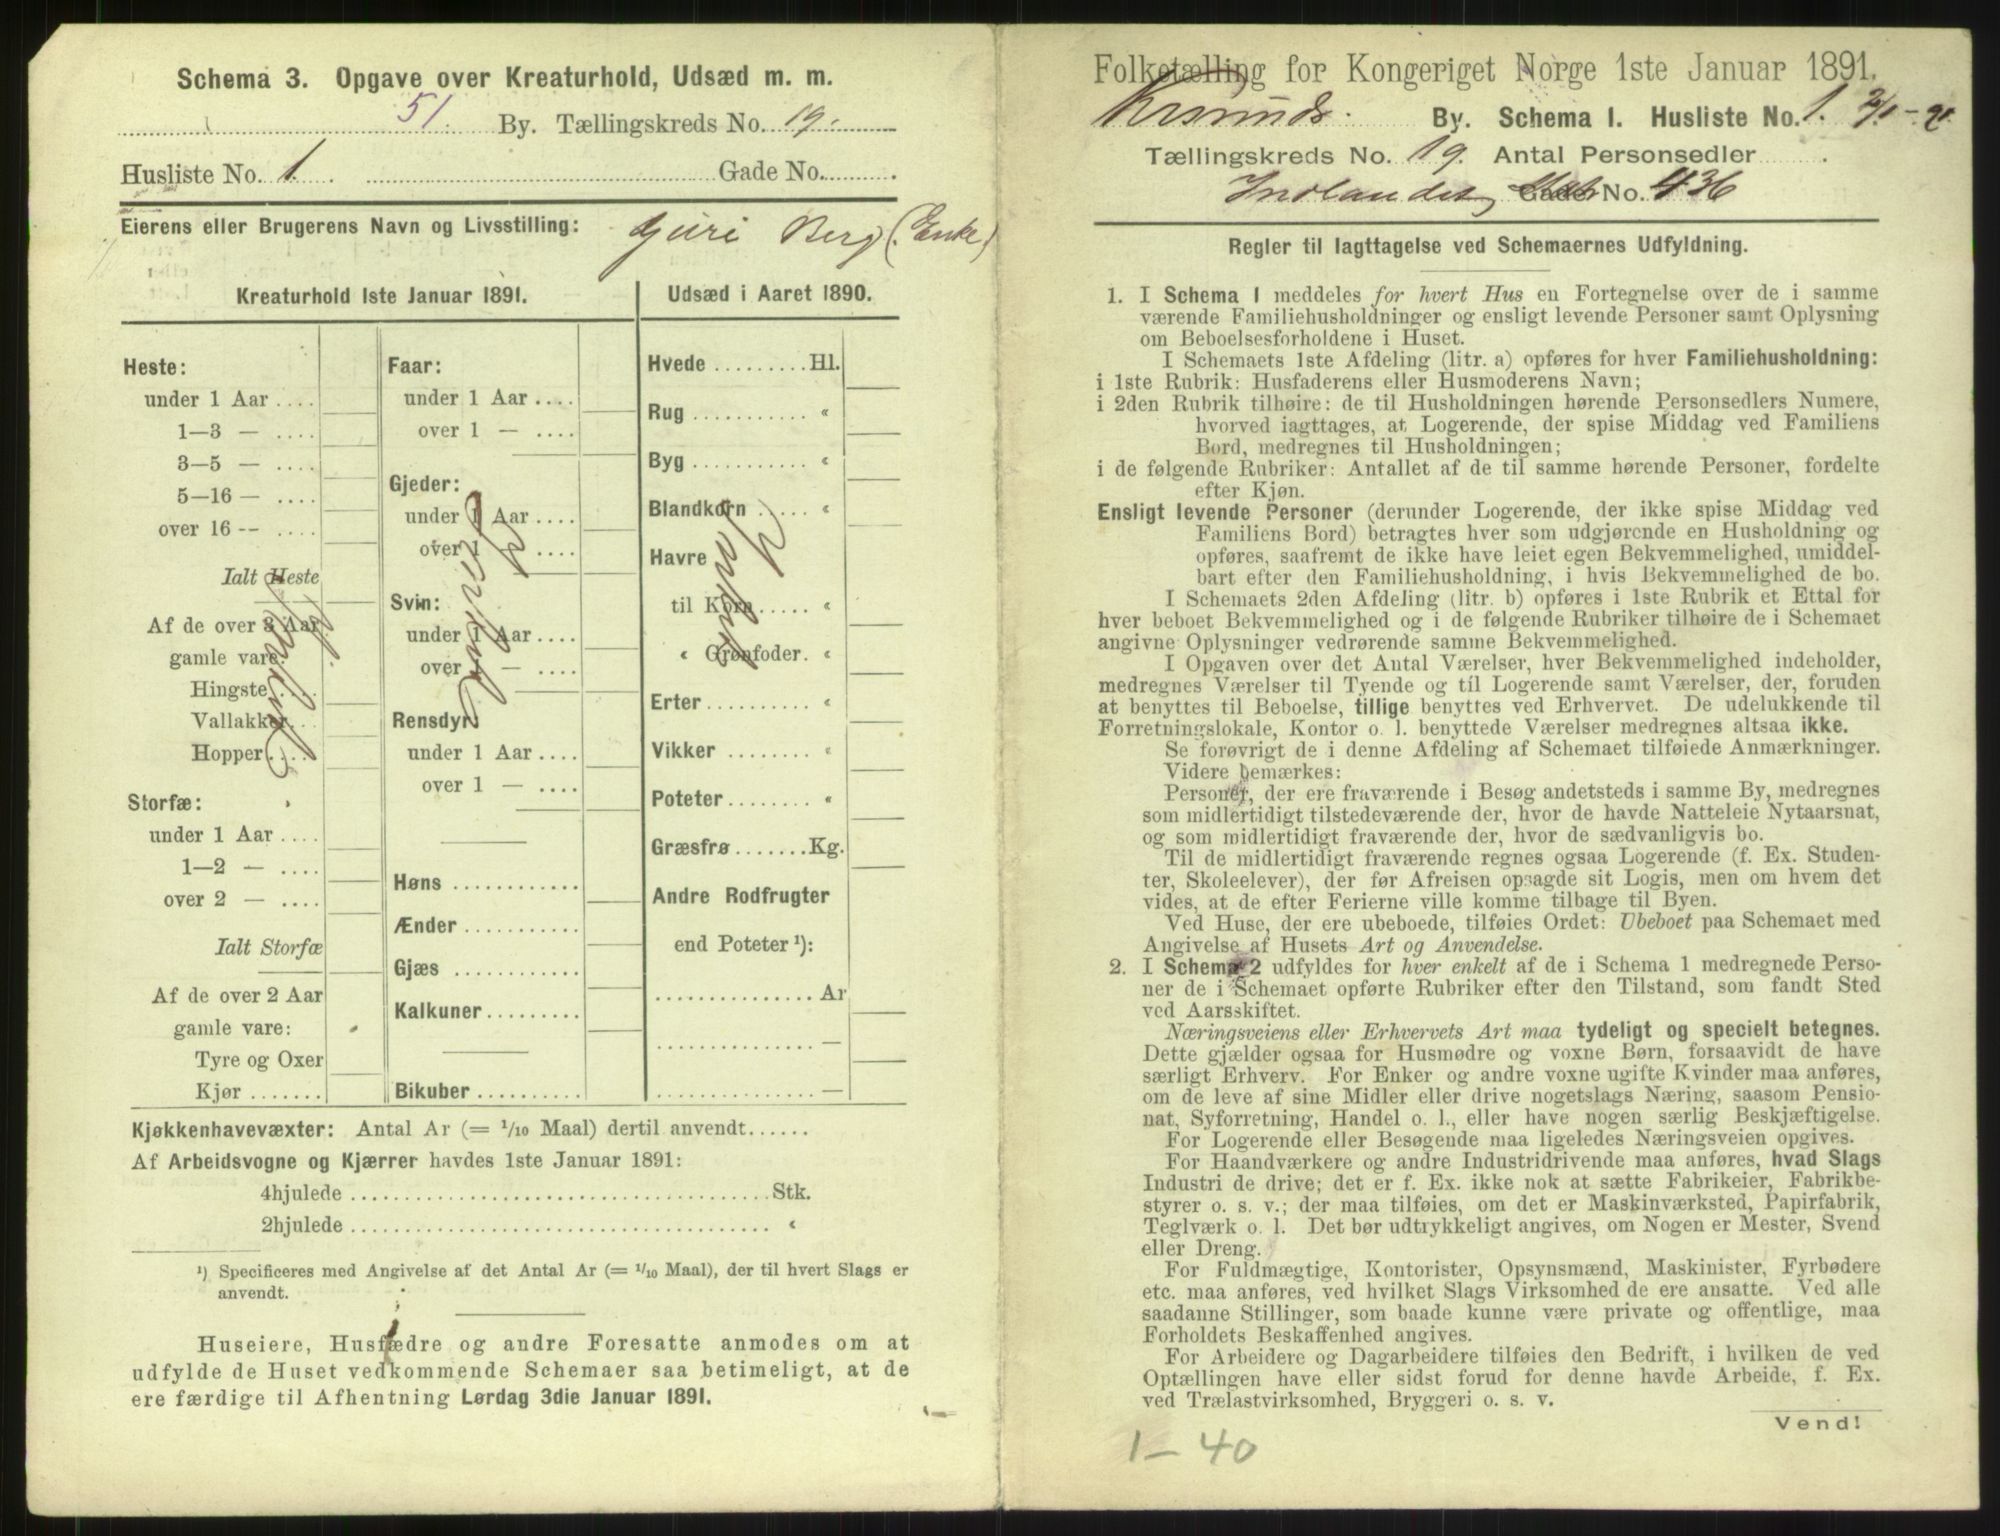 Schema 3. Opgave over Kreaturhold, Udsæd m. m.
51. By. Tællingskreds No. 19.
Husliste No. 1. Gade No.
Eierens eller Brugerens Navn og Livsstilling: Guri Berg (Enke)
Kreaturhold 1ste Januar 1891.
Heste:
under 1 Aar ....
1—3 — ....
3—5 — ....
5—16 — ....
over 16 -- ....
Ialt Heste
Af de over 3 Aar
gamle vare:
Hingste....
Vallakker..
Hopper....
Storfæ:
under 1 Aar ....
1—2 — ....
over 2 — ....
Ialt Storfæ
Af de over 2 Aar
gamle vare:
Tyre og Oxer
Kjør .......
Faar:
under 1 Aar ....
over 1 — ....
Gjeder:
under 1 Aar ....
over 1 — ....
Svin:
under 1 Aar ....
over 1 — ....
Rensdyr:
under 1 Aar ....
over 1 — ....
Høns ............
Ænder ...........
Gjæs ............
Kalkuner.........
Bikuber ..........
Udsæd i Aaret 1890.
Hvede ......... Hl.
Rug ........... «
Byg ........... «
Blandkorn ..... «
Havre
til Korn ..... «
« Grønfoder. «
Erter ......... «
Vikker ........ «
Poteter ....... «
Græsfrø ....... Kg.
Andre Rodfrugter
end Poteter ¹):
............... Ar
............... —
............... —
Kjøkkenhavevæxter: Antal Ar (= 1/10 Maal) dertil anvendt......
Af Arbeidsvogne og Kjærrer havdes 1ste Januar 1891:
4hjulede ........................................ Stk.
2hjulede ........................................ «
¹) Specificeres med Angivelse af det Antal Ar (= 1/10 Maal), der til hvert Slags er
anvendt.
Huseiere, Husfædre og andre Foresatte anmodes om at
udfylde de Huset vedkommende Schemaer saa betimeligt, at de
ere færdige til Afhentning Lørdag 3die Januar 1891.
Folketælling for Kongeriget Norge 1ste Januar 1891.
Krsunds. By. Schema I. Husliste No. 1.
Tællingskreds No. 19. Antal Personsedler
Indlandet, Gade No. 436
Regler til Iagttagelse ved Schemaernes Udfyldning.
1. I Schema 1 meddeles for hvert Hus en Fortegnelse over de i samme
værende Familiehusholdninger og ensligt levende Personer samt Oplysning
om Beboelsesforholdene i Huset.
I Schemaets 1ste Afdeling (litr. a) opføres for hver Familiehusholdning:
i 1ste Rubrik: Husfaderens eller Husmoderens Navn;
i 2den Rubrik tilhøire: de til Husholdningen hørende Personsedlers Numere,
hvorved iagttages, at Logerende, der spise Middag ved Familiens
Bord, medregnes til Husholdningen;
i de følgende Rubriker: Antallet af de til samme hørende Personer, fordelte
efter Kjøn.
Ensligt levende Personer (derunder Logerende, der ikke spise Middag ved
Familiens Bord) betragtes hver som udgjørende en Husholdning og
opføres, saafremt de ikke have leiet egen Bekvemmelighed, umiddel-
bart efter den Familiehusholdning, i hvis Bekvemmelighed de bo.
I Schemaets 2den Afdeling (litr. b) opføres i 1ste Rubrik et Ettal for
hver beboet Bekvemmelighed og i de følgende Rubriker tilhøire de i Schemaet
angivne Oplysninger vedrørende samme Bekvemmelighed.
I Opgaven over det Antal Værelser, hver Bekvemmelighed indeholder,
medregnes Værelser til Tyende og til Logerende samt Værelser, der, foruden
at benyttes til Beboelse, tillige benyttes ved Erhvervet. De udelukkende til
Forretningslokale, Kontor o. l. benyttede Værelser medregnes altsaa ikke.
Se forøvrigt de i denne Afdeling af Schemaet tilføiede Anmærkninger.
Videre bemærkes:
Personer, der ere fraværende i Besøg andetsteds i samme By, medregnes
som midlertidigt tilstedeværende der, hvor de havde Natteleie Nytaarsnat,
og som midlertidigt fraværende der, hvor de sædvanligvis bo.
Til de midlertidigt fraværende regnes ogsaa Logerende (f. Ex. Studen-
ter, Skoleelever), der før Afreisen opsagde sit Logis, men om hvem det
vides, at de efter Ferierne ville komme tilbage til Byen.
Ved Huse, der ere ubeboede, tilføies Ordet: Ubeboet paa Schemaet med
Angivelse af Husets Art og Anvendelse.
2. I Schema 2 udfyldes for hver enkelt af de i Schema 1 medregnede Perso-
ner de i Schemaet opførte Rubriker efter den Tilstand, som fandt Sted
ved Aarsskiftet.
Næringsveiens eller Erhvervets Art maa tydeligt og specielt betegnes.
Dette gjælder ogsaa for Husmødre og voxne Børn, forsaavidt de have
særligt Erhverv. For Enker og andre voxne ugifte Kvinder maa anføres,
om de leve af sine Midler eller drive nogetslags Næring, saasom Pensio-
nat, Syforretning, Handel o. l., eller have nogen særlig Beskjæftigelse.
For Logerende eller Besøgende maa ligeledes Næringsveien opgives.
For Haandværkere og andre Industridrivende maa anføres, hvad Slags
Industri de drive; det er f. Ex. ikke nok at sætte Fabrikeier, Fabrikbe-
styrer o. s. v.; der maa tilføies, om det er Maskinværksted, Papirfabrik,
Teglværk o. l. Det bør udtrykkeligt angives, om Nogen er Mester, Svend
eller Dreng.
For Fuldmægtige, Kontorister, Opsynsmænd, Maskinister, Fyrbødere
etc. maa anføres, ved hvilket Slags Virksomhed de ere ansatte. Ved alle
saadanne Stillinger, som baade kunne være private og offentlige, maa
Forholdets Beskaffenhed angives.
For Arbeidere og Dagarbeidere tilføies den Bedrift, i hvilken de ved
Optællingen have eller sidst forud for denne havde Arbeide, f. Ex.
ved Trælastvirksomhed, Bryggeri o. s. v.
Vend!
1—40